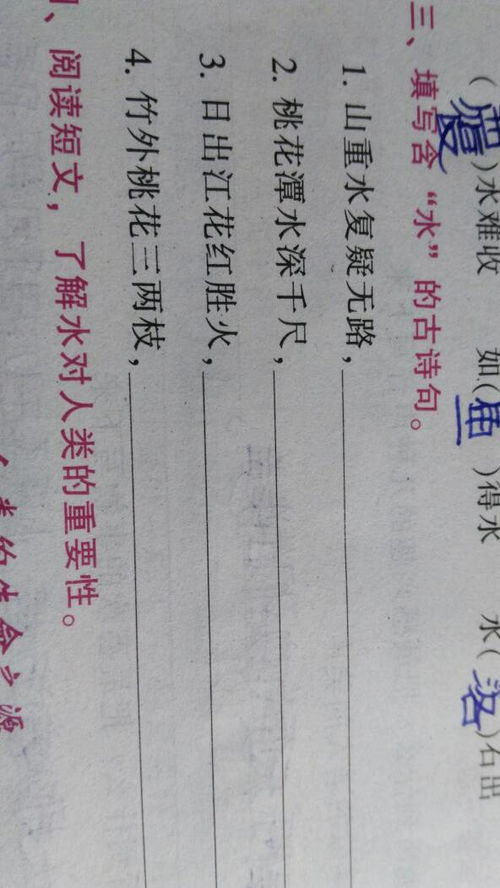 (覆)水难收 如(鱼)得水 水(落)石出
三、填写含“水”的古诗句。
1. 山重水复疑无路，
2. 桃花潭水深千尺，
3. 日出江花红胜火，
4. 竹外桃花三两枝，
、阅读短文，了解水对人类的重要性。
人类的生命之源